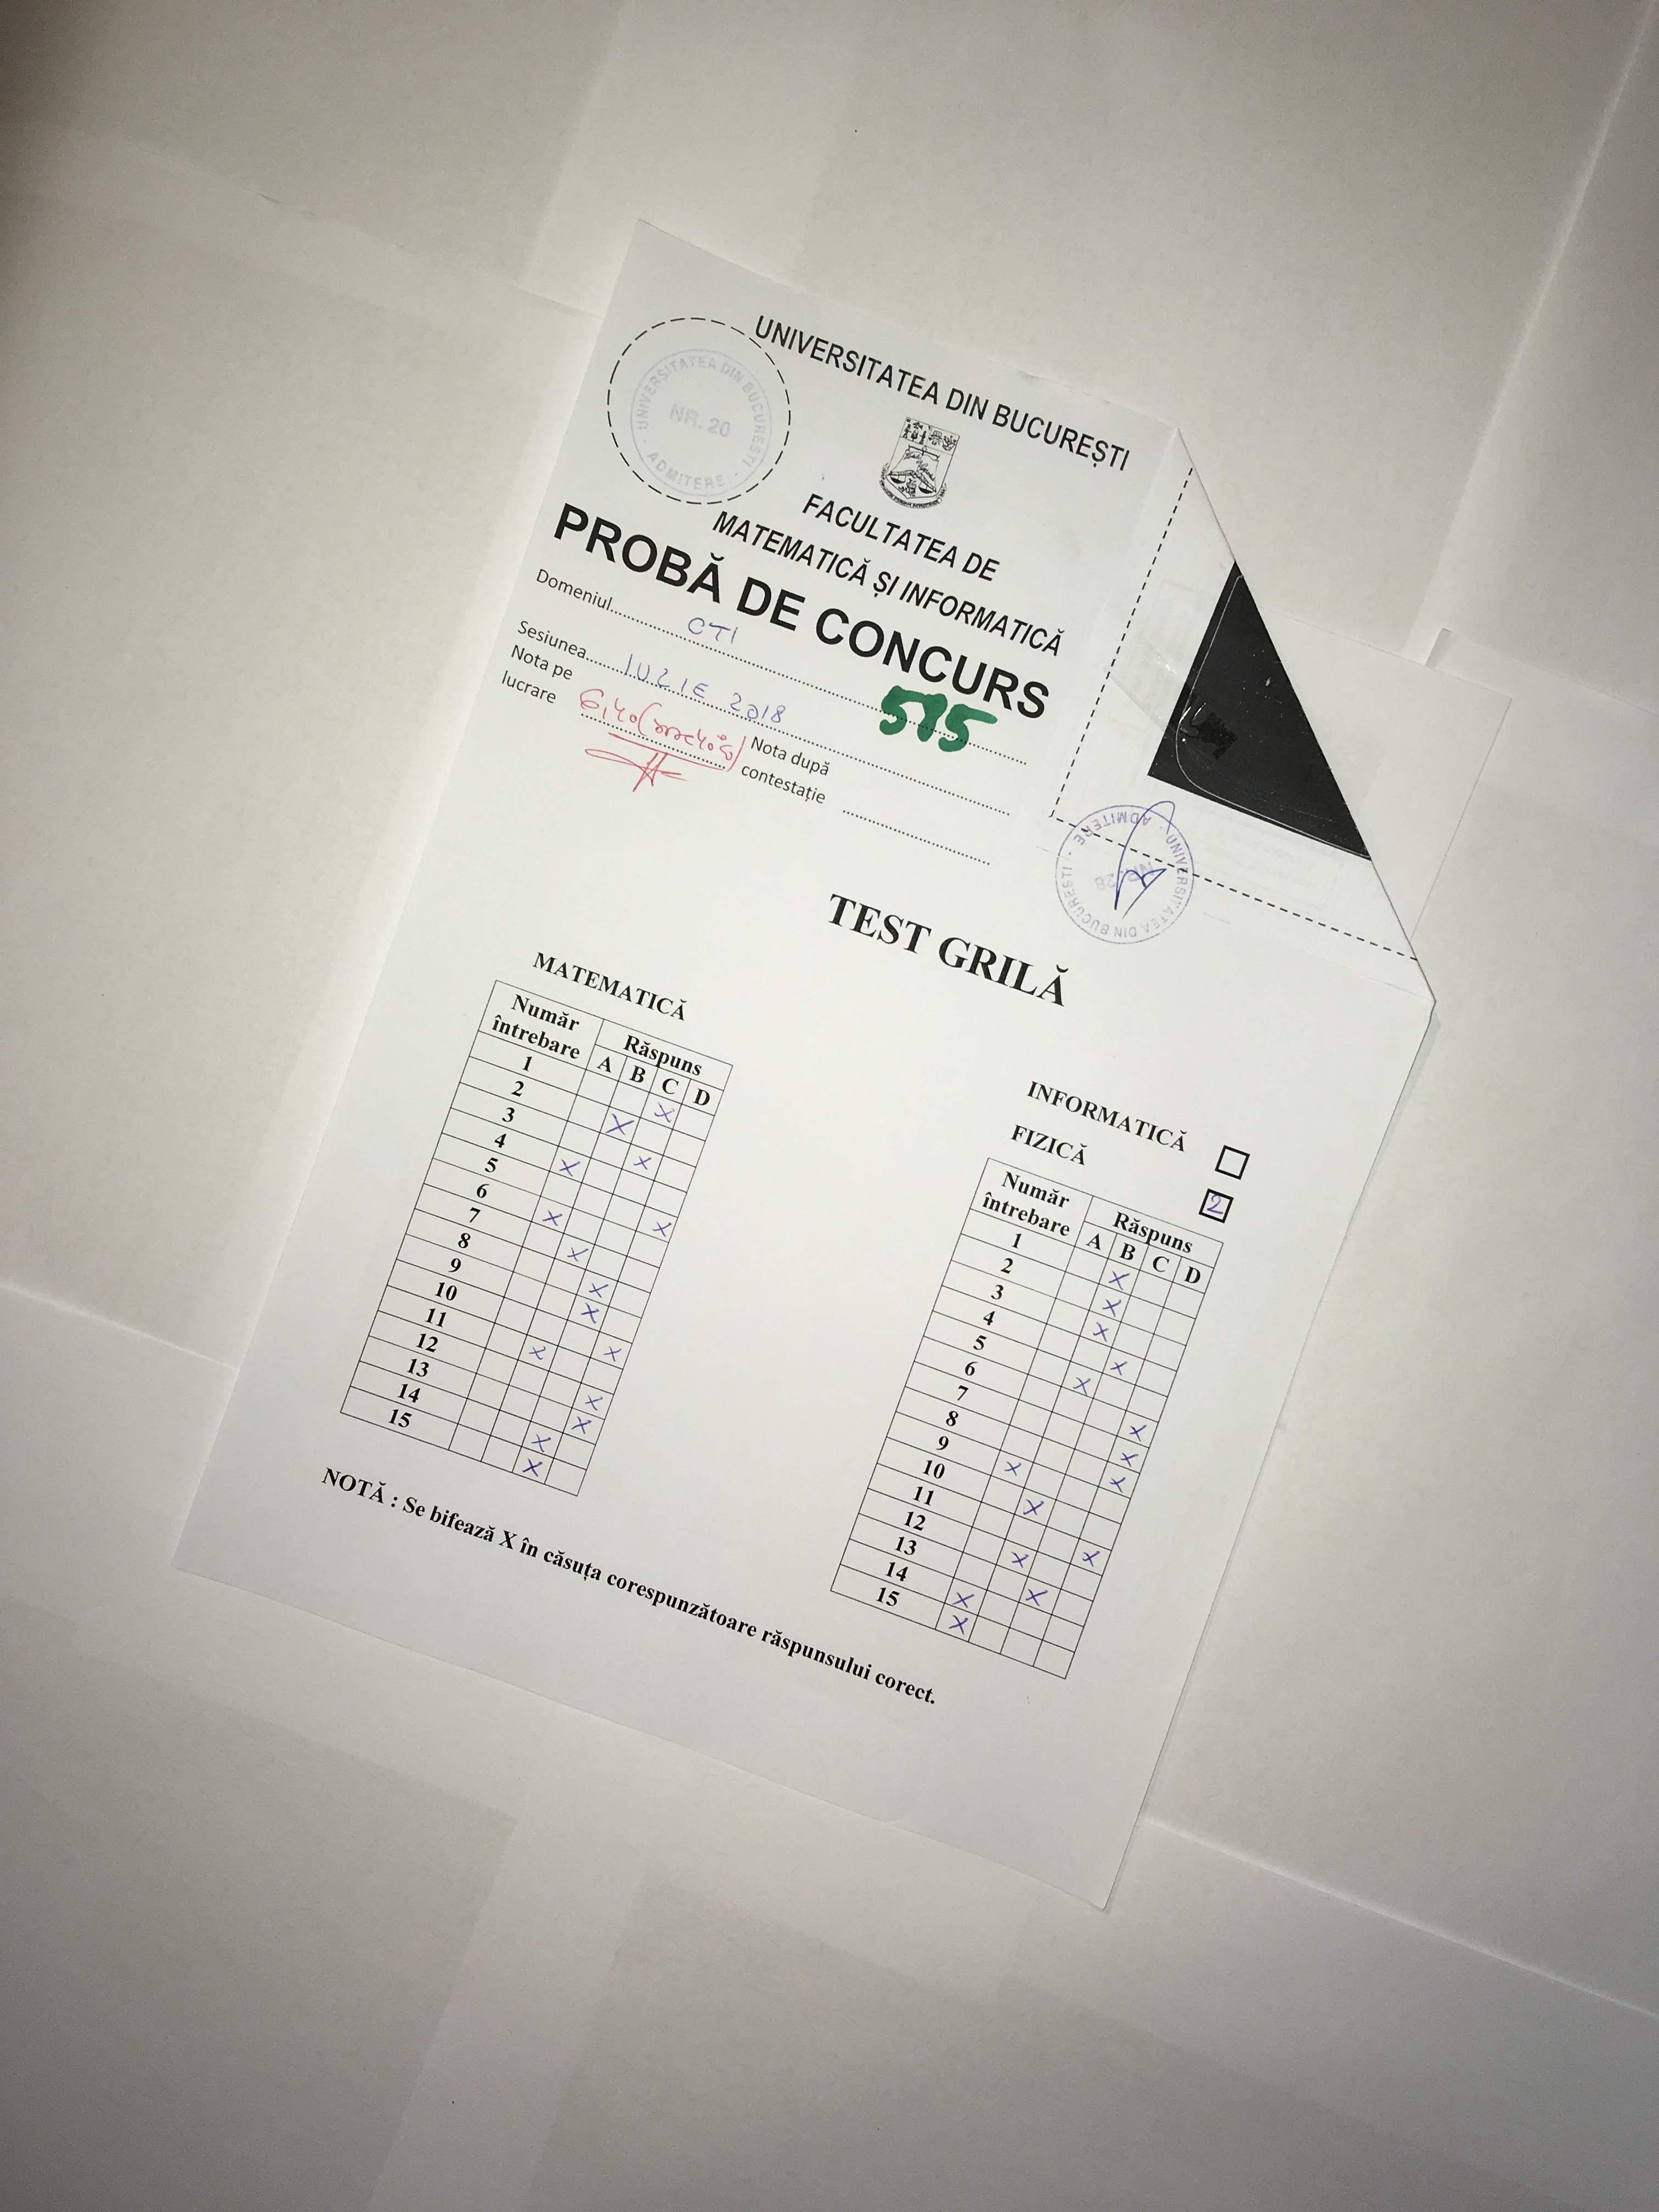 UNIVERSITATEA DIN BUCUREȘTI
UNIVERSITATEA DIN BUCUREȘTI - ADMITERE -
NR. 20
FACULTATEA DE
MATEMATICĂ ȘI INFORMATICĂ
PROBĂ DE CONCURS
Domeniul CTI
595
Sesiunea IULIE 2018
Nota pe lucrare 6,40
Nota după contestație
UNIVERSITATEA DIN BUCUREȘTI - ADMITERE -
NR. 28
TEST GRILĂ
MATEMATICĂ
Număr întrebare Răspuns
A B C D
1 X
2 X
3 X
4 X
5 X
6 X
7 X
8 X
9 X
10 X
11 X
12 X
13 X
14 X
15 X
INFORMATICĂ
FIZICĂ 2
Număr întrebare Răspuns
A B C D
1 X
2 X
3 X
4 X
5 X
6 X
7 X
8 X
9 X
10 X
11 X
12 X
13 X
14 X
15 X
NOTĂ : Se bifează X în căsuța corespunzătoare răspunsului corect.